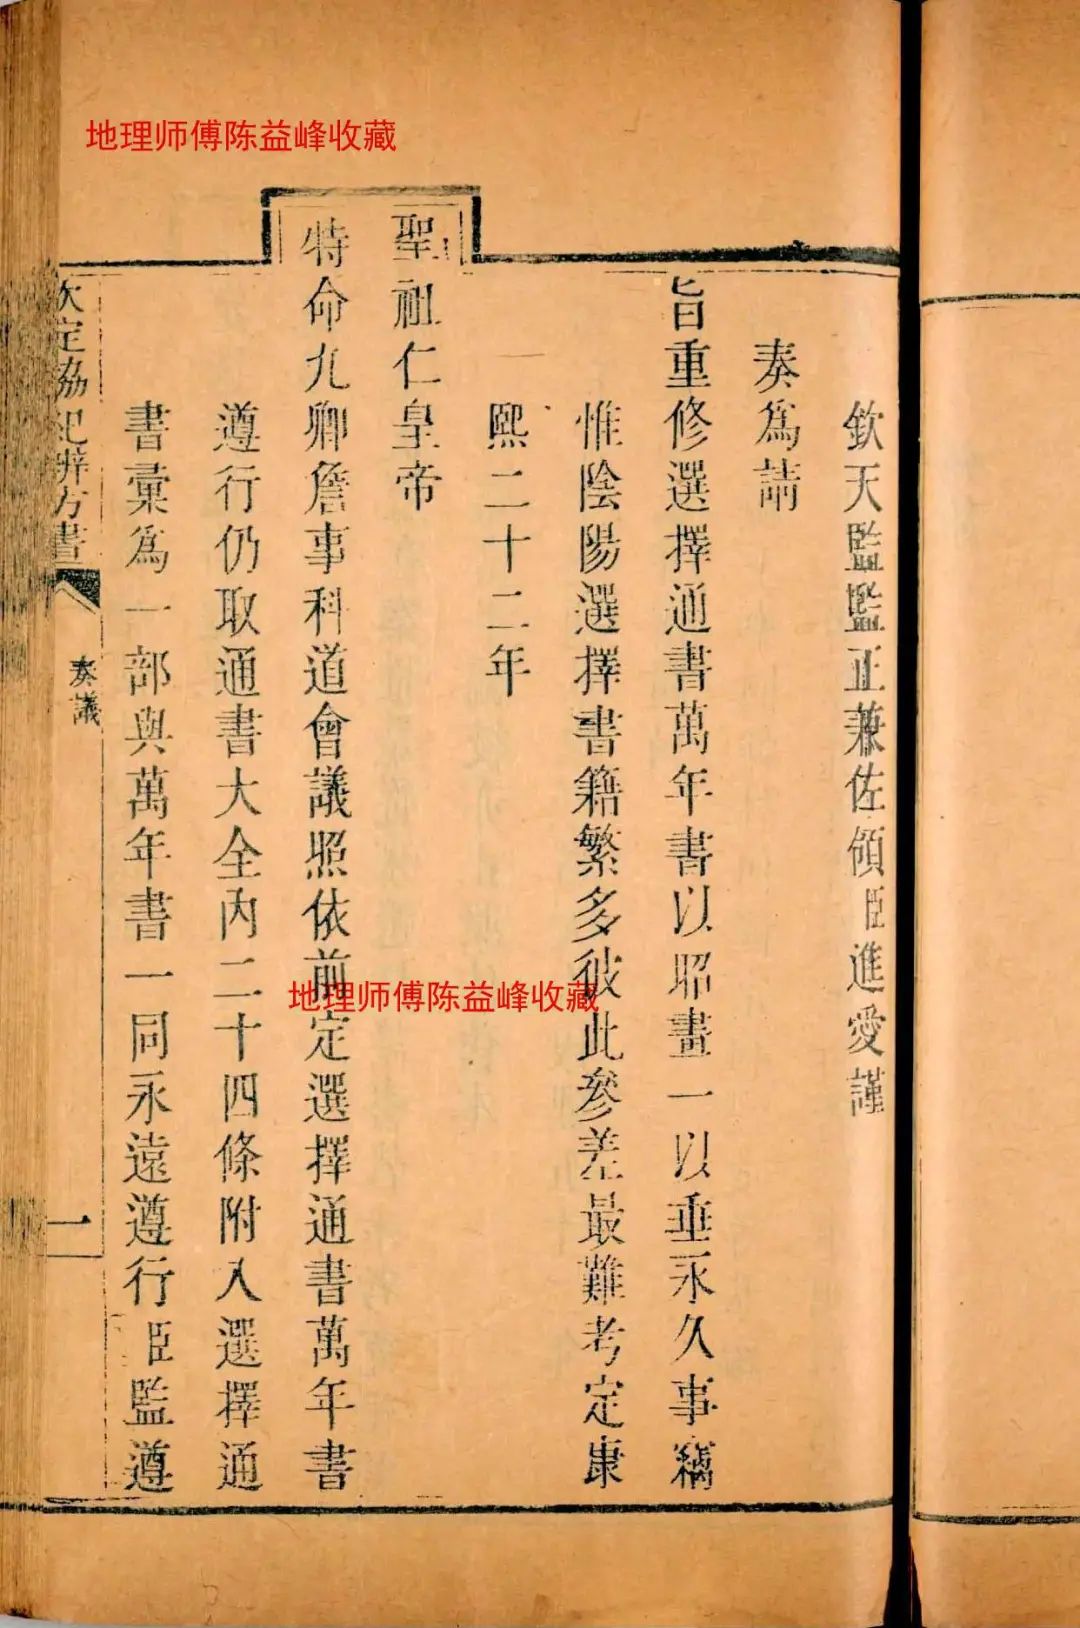 地理师傅陈益峰收藏
欽天監監正兼佐領臣進愛謹
奏為請
旨重修選擇通書萬年書以昭畫一以垂永久事竊
惟陰陽選擇書籍繁多彼此參差最難考定康
熙二十二年
聖祖仁皇帝
特命九卿詹事科道會議照依前定選擇通書萬年書
遵行仍取通書大全内二十四條附入選擇通
書彙為一部與萬年書一同永遠遵行臣監遵
欽定協紀辨方書
奏議
一
地理师傅陈益峰收藏